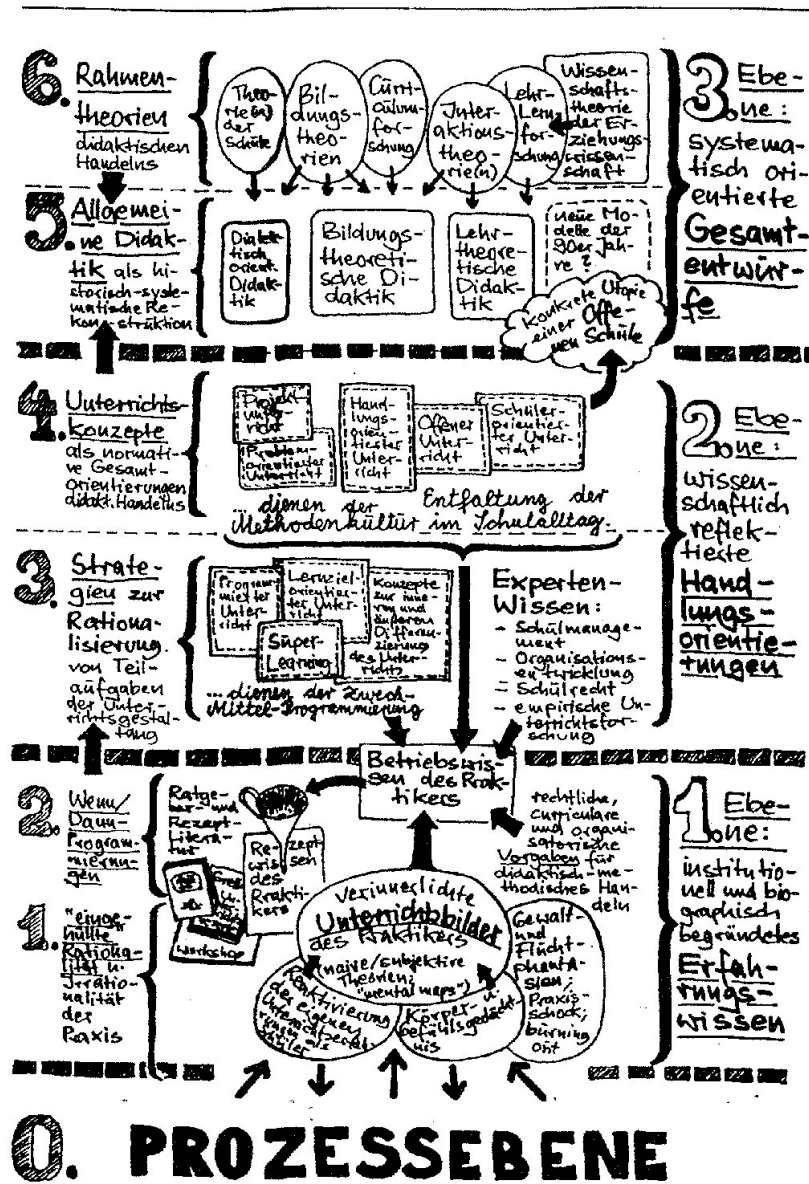 6. Rahmen-
theorien
didaktischen
Handelns
Theo-
rie(n)
der
Schule
Bil-
dungs-
theo-
rien
Curri-
culum-
for-
schung
Inter-
aktions-
theo-
rie(n)
Lehr-
Lern-
for-
schung
Wissen-
schafts-
theorie
der Er-
ziehungs-
wissen-
schaft
3. Ebe-
ne:
systema-
tisch ori-
entierte
Gesamt-
entwür-
fe
5. Allgemei-
ne Didak-
tik als hi-
storisch-syste-
matische Re-
konstruktion
Dialek-
tisch
orient.
Didak-
tik
Bildungs-
theoreti-
sche Di-
daktik
Lehr-
theore-
tische
Didak-
tik
neue Mo-
delle der
90er Jah-
re?
Konkrete Utopie
einer Offe-
nen Schule
4. Unterrichts-
konzepte
als normati-
ve Gesamt-
Orientierungen
didakt. Handelns
Projekt-
unter-
richt
Problem-
orientierter
Unterricht
Hand-
lungs-
orien-
tierter
Unter-
richt
Offener
Unter-
richt
Schüler-
orientier-
ter Unter-
richt
... dienen der Entfaltung der
Methodenkultur im Schulalltag.
2. Ebe-
ne:
wissen-
schaftlich
reflek-
tierte
Hand-
lungs-
orientie-
rungen
3. Strate-
gien zur
Rationa-
lisierung
von Teil-
aufgaben
der Unter-
richtsgestal-
tung
Program-
mierter
Unter-
richt
Lernziel-
orientier-
ter Unter-
richt
Super-
Learning
Konzepte
zur inne-
ren und
äußeren
Differen-
zierung
des Unter-
richts
... dienen der Zweck-
Mittel-Programmierung
Experten-
Wissen:
- Schulmanage-
ment
- Organisations-
entwicklung
- Schulrecht
- empirische Un-
terrichtsfor-
schung
Betriebswis-
sen des Prak-
tikers
2. Wenn/
Dann-
Program-
mierungen
Ratge-
ber- und
Rezept-
Literatur
Rezept-
wissen
des
Prakti-
kers
Workshop
rechtliche,
curriculare
und organi-
satorische
Vorgaben für
didaktisch-me-
thodisches Han-
deln
1. Ebe-
ne:
institutio-
nell und bio-
graphisch
begründetes
Erfah-
rungs-
wissen
1. "einge-
hüllte"
Rationa-
lität u.
Irratio-
nalität
der
Praxis
verinnerlichte
Unterrichtsbilder
des Praktikers
(naive/subjektive
Theorien;
"mental maps")
Reaktivierung
der eigenen
Unterrichtserfah-
rungen als
Schüler
Körper- u.
Gefühlsgedächt-
nis
Gewalt-
und
Flucht-
phanta-
sien;
Praxis-
schock;
burning
out
0. PROZESSEBENE